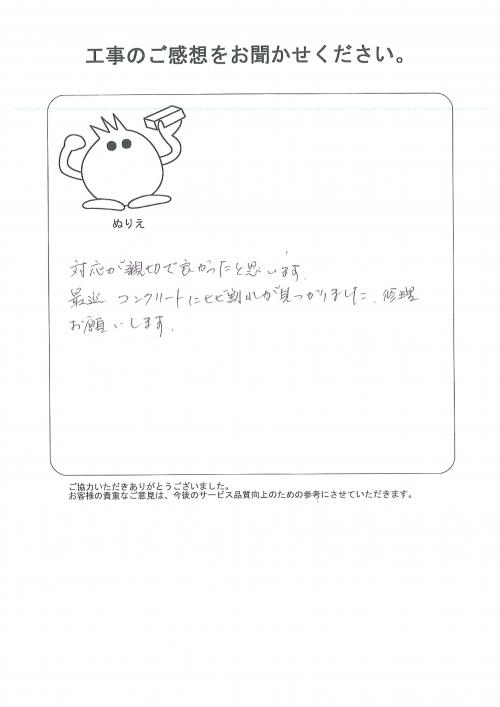 工事のご感想をお聞かせください。
ぬりえ
対応が親切で良かったと思います.
最近 コンクリートにヒビ割れが見つかりました. 修理
お願いします.
ご協力いただきありがとうございました。
お客様の貴重なご意見は、今後のサービス品質向上のための参考にさせていただきます。